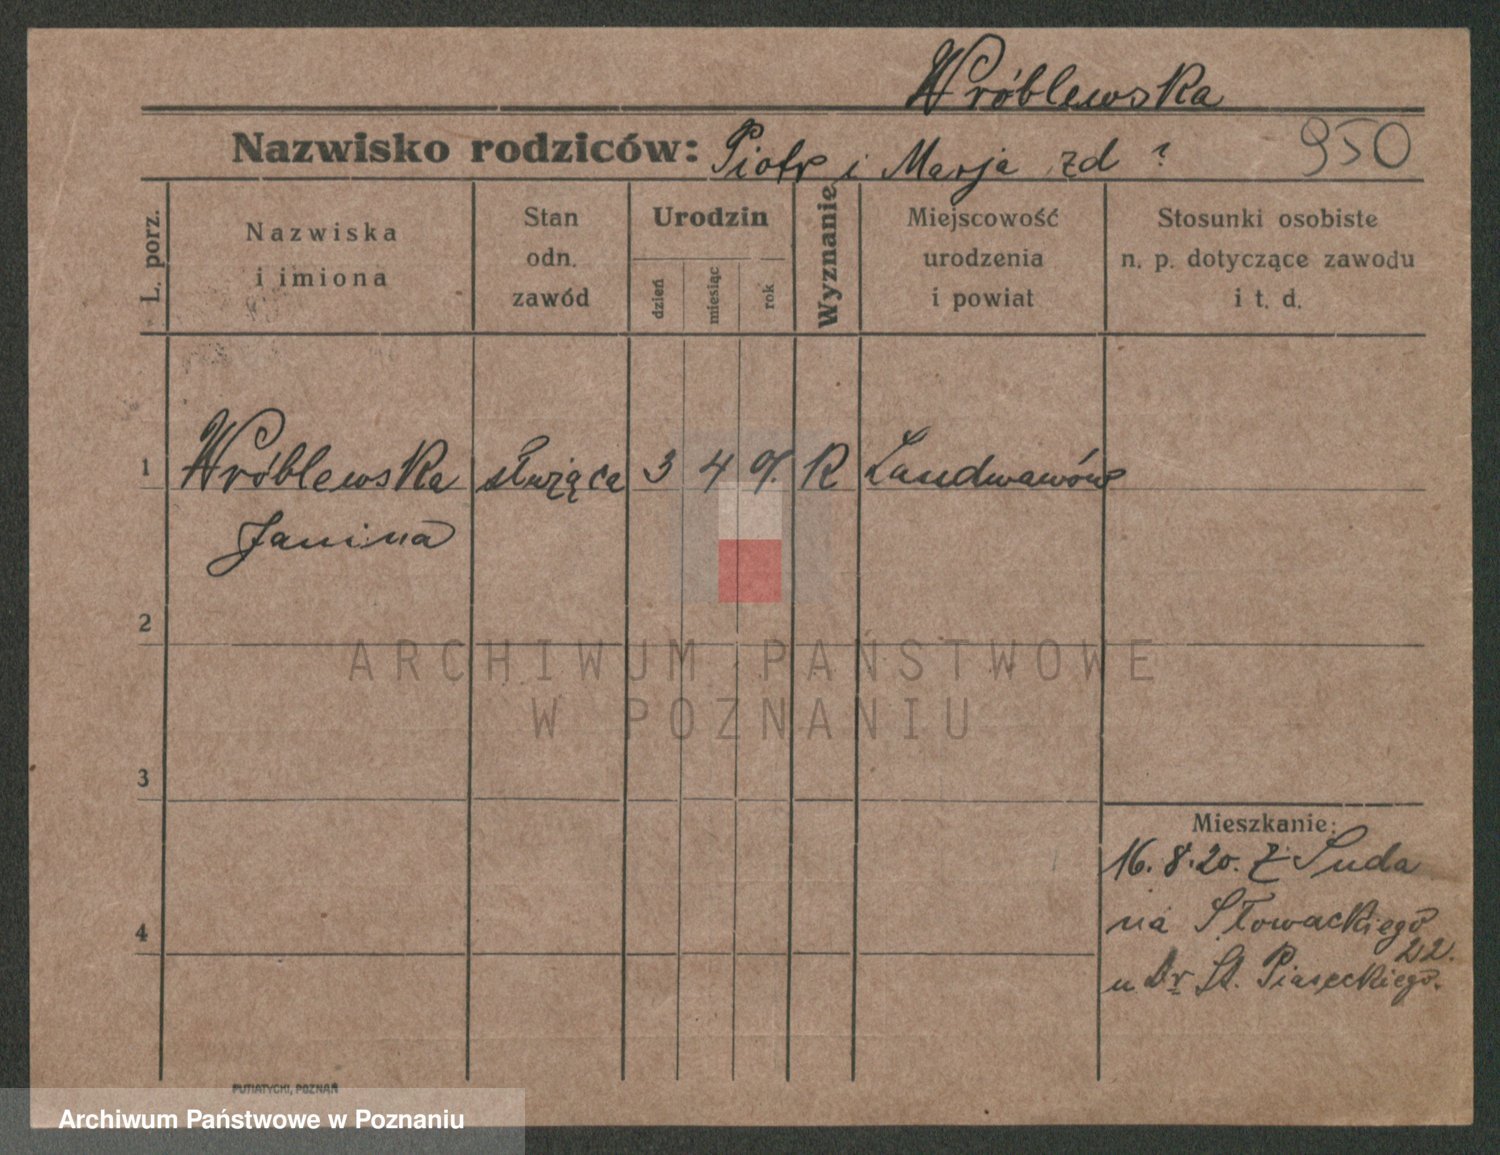 Wróblewska
Nazwisko rodziców: Piotr i Marja zd ? 950
L. porz.
Nazwiska
i imiona
Stan
odn.
zawód
Urodzin
dzień
miesiąc
rok
Wyznanie
Miejscowość
urodzenia
i powiat
Stosunki osobiste
n. p. dotyczące zawodu
i t. d.
1 Wróblewska służąca 3 4 R
Janina
2
ARCHIWUM PAŃSTWOWE
W POZNANIU
3
Mieszkanie:
16.8.20. z
na Słowackiego
22.
u Dr St. Piaseckiego.
4
PUTIATYCKI, POZNAŃ
Archiwum Państwowe w Poznaniu